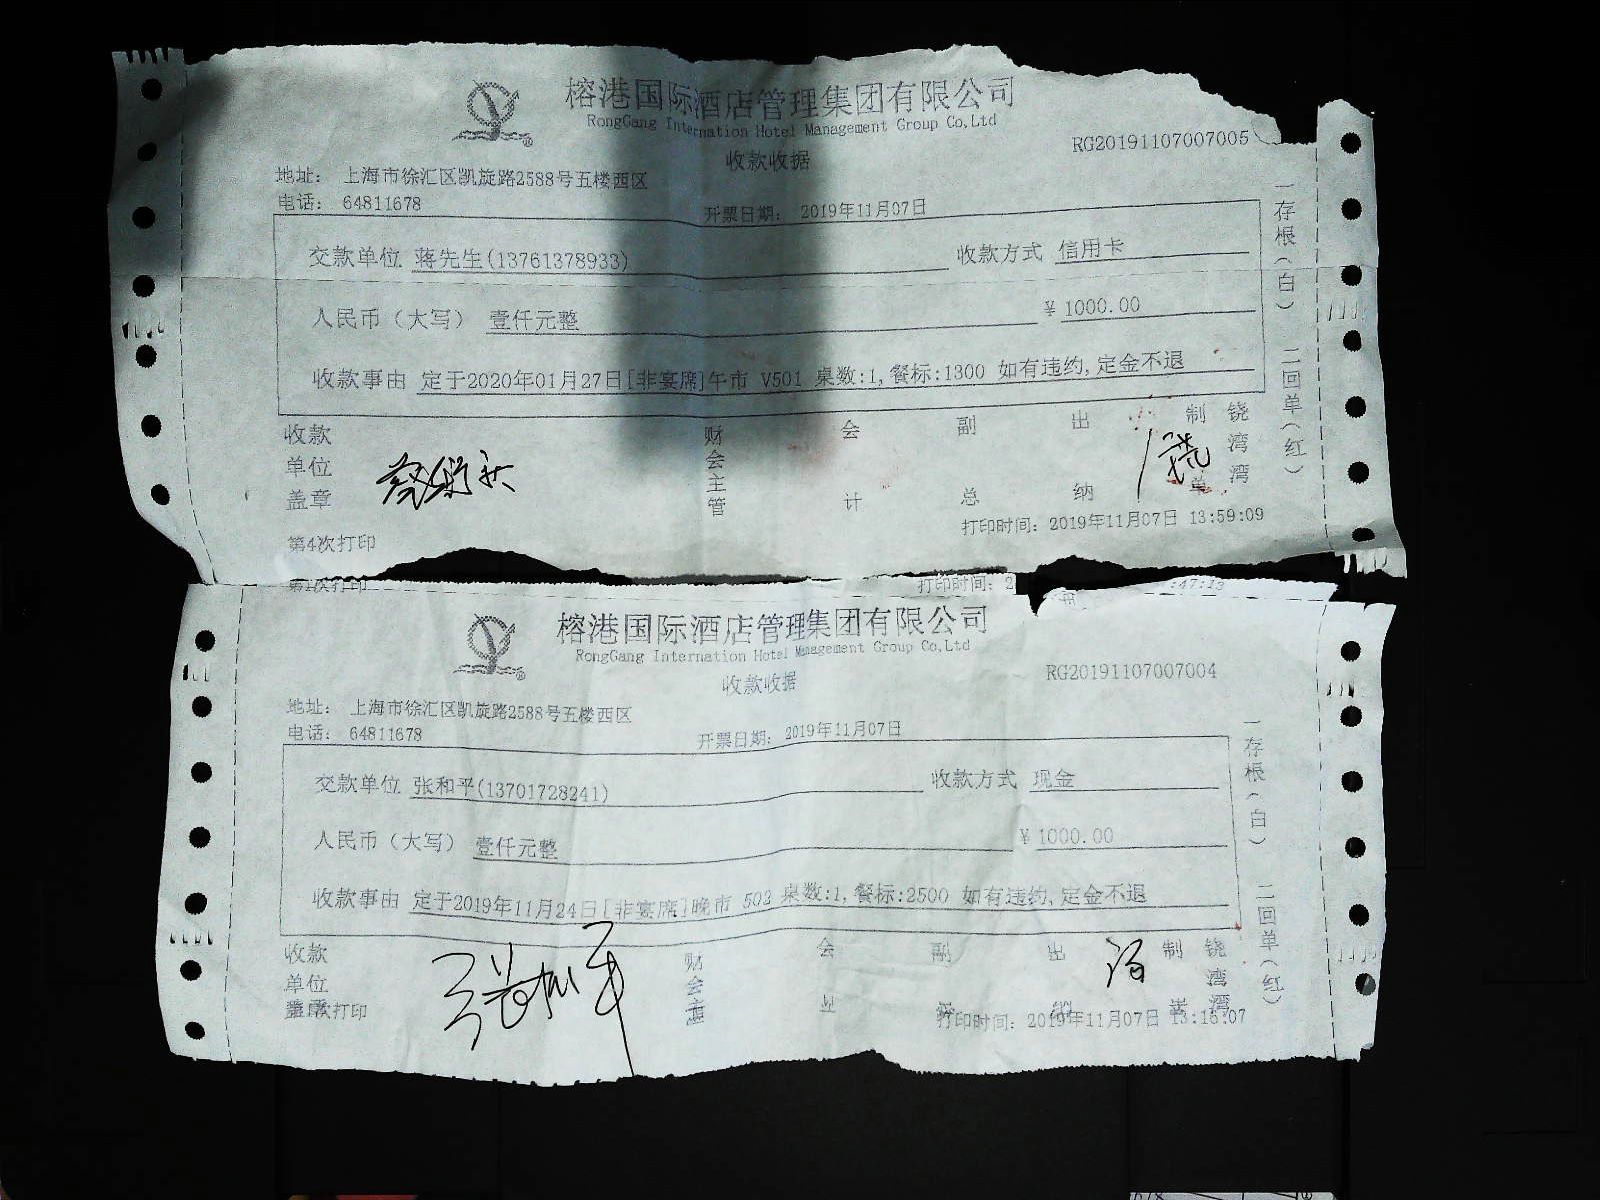 榕港国际酒店管理集团有限公司
RongGang Internation Hotel Management Group Co,Ltd
收款收据
RG20191107007005
地址： 上海市徐汇区凯旋路2588号五楼西区
电话： 64811678
开票日期： 2019年11月07日
交款单位 蒋先生(13761378933) 收款方式 信用卡
人民币（大写） 壹仟元整 ¥ 1000.00
收款事由 定于2020年01月27日[非宴席]午市 V501 桌数:1,餐标:1300 如有违约,定金不退
一存根（白） 二回单（红）
收款单位盖章 财会主管 会计 副总 出纳 制单 饶湾湾
打印时间：2019年11月07日 13:59:09
第4次打印
第1次打印 打印时间：2 :47:13
榕港国际酒店管理集团有限公司
RongGang Internation Hotel Management Group Co,Ltd
收款收据
RG20191107007004
地址： 上海市徐汇区凯旋路2588号五楼西区
电话： 64811678
开票日期： 2019年11月07日
交款单位 张和平(13701728241) 收款方式 现金
人民币（大写） 壹仟元整 ¥ 1000.00
收款事由 定于2019年11月24日[非宴席]晚市 502 桌数:1,餐标:2500 如有违约,定金不退
一存根（白） 二回单（红）
收款单位 财会主管 会 副 出 制 饶湾湾
张和平
次打印 打印时间：2019年11月07日 13:15:07